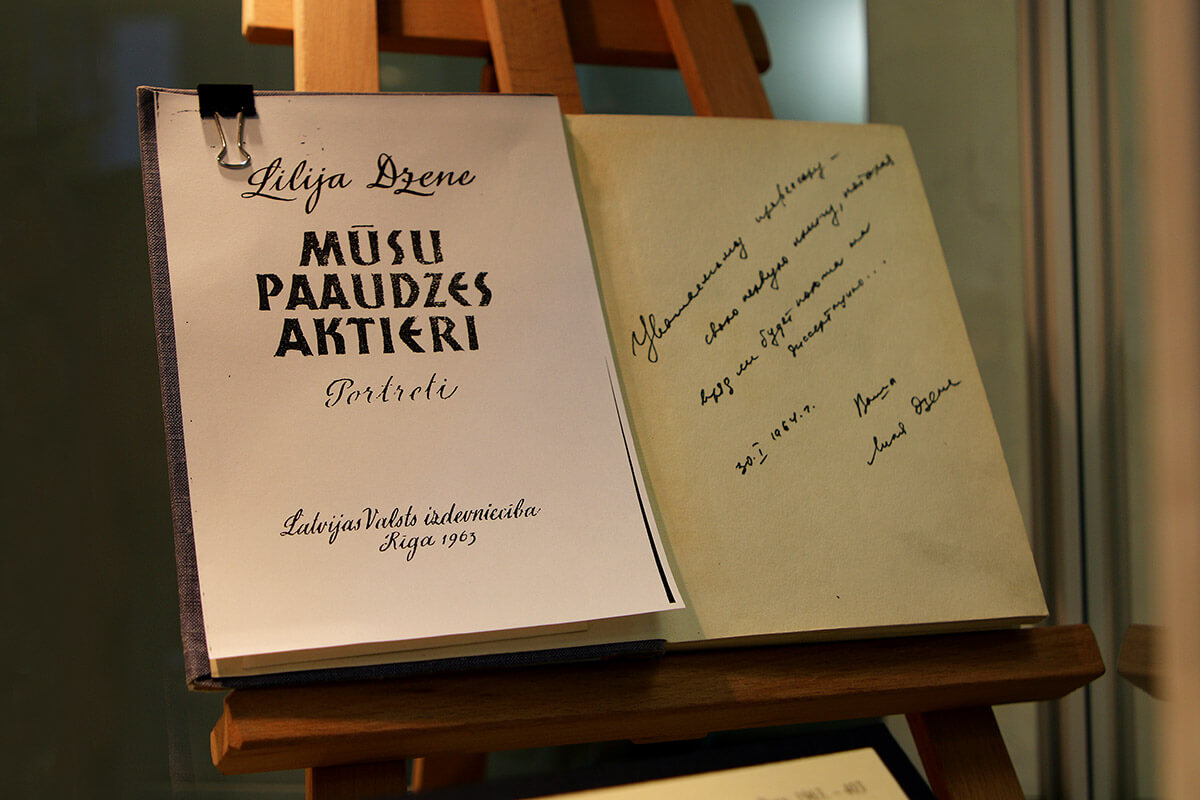 Lilija Dzene
MŪSU
PAAUDZES
AKTIERI
Portreti
Latvijas Valsts izdevniecība
Rīga 1963
Уважаемому профессору –
свою первую книгу, которая
вряд ли будет похожа на
диссертацию...
30.I 1964.г.
Ваша
Лилия Дзене
1963. – 403